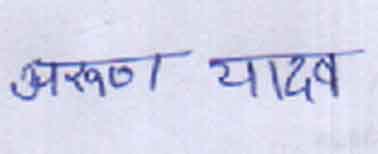 अरूण यादव